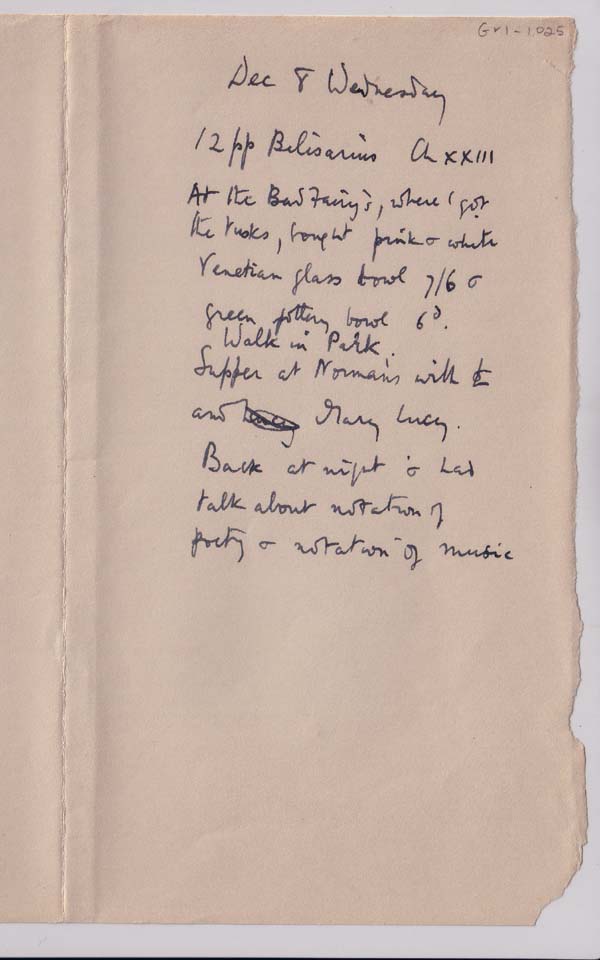 Gr1-1025
Dec 8 Wednesday
12 pp Belisarius Ch XXIII
At the Bad Fairy's, where I got
the tusks, bought pink & white
Venetian glass bowl 7/6 &
green pottery bowl 6d.
Walk in Park.
Supper at Norman's with
and Mary Lucy.
Back at night & had
talk about notation of
poetry & notation of music